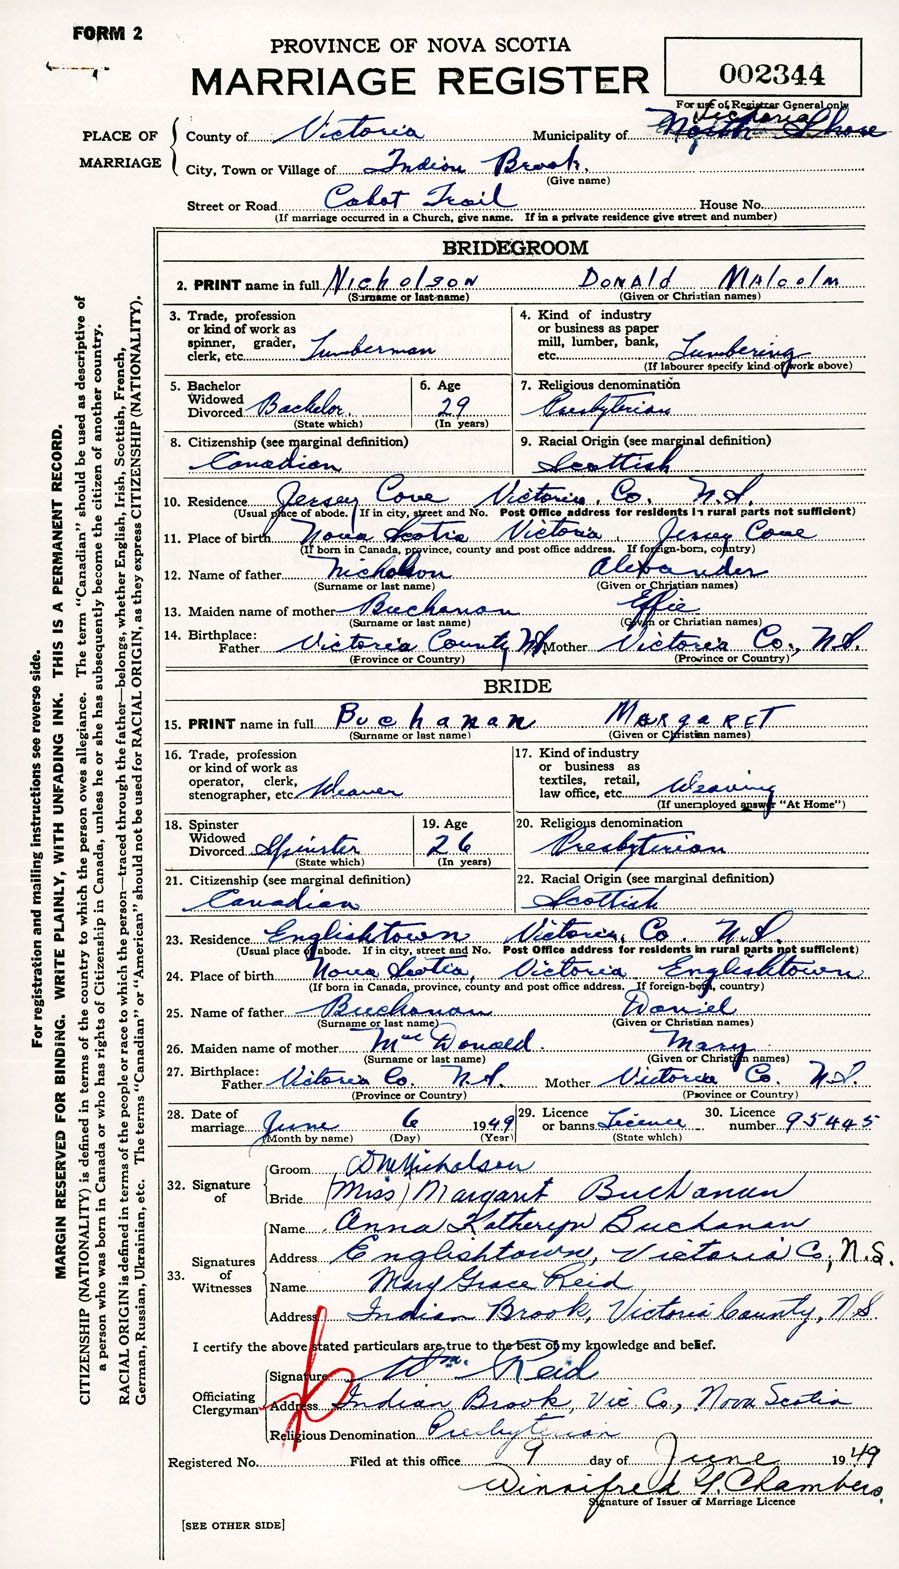 FORM 2
PROVINCE OF NOVA SCOTIA
MARRIAGE REGISTER
002344
For use of Registrar General only
PLACE OF MARRIAGE
County of Victoria Municipality of Victoria North Shore
City, Town or Village of Indian Brook.
(Give name)
Street or Road Cabot Trail House No.
(If marriage occurred in a Church, give name. If in a private residence give street and number)
BRIDEGROOM
2. PRINT name in full Nicholson Donald Malcolm
(Surname or last name) (Given or Christian names)
3. Trade, profession or kind of work as spinner, grader, clerk, etc. Lumberman
4. Kind of industry or business as paper mill, lumber, bank, etc. Lumbering
(If labourer specify kind of work above)
5. Bachelor Widowed Divorced Bachelor.
(State which)
6. Age 29
(In years)
7. Religious denomination Presbyterian
8. Citizenship (see marginal definition) Canadian
9. Racial Origin (see marginal definition) Scottish
10. Residence Jersey Cove Victoria Co. N.S.
(Usual place of abode. If in city, street and No. Post Office address for residents in rural parts not sufficient)
11. Place of birth Nova Scotia Victoria Jersey Cove
(If born in Canada, province, county and post office address. If foreign-born, country)
12. Name of father Nicholson Alexander
(Surname or last name) (Given or Christian names)
13. Maiden name of mother Buchanan Effie
(Surname or last name) (Given or Christian names)
14. Birthplace: Father Victoria County N.S. Mother Victoria Co., N.S.
(Province or Country) (Province or Country)
BRIDE
15. PRINT name in full Buchanan Margaret
(Surname or last name) (Given or Christian names)
16. Trade, profession or kind of work as operator, clerk, stenographer, etc. Weaver
17. Kind of industry or business as textiles, retail, law office, etc. Weaving
(If unemployed answer "At Home")
18. Spinster Widowed Divorced Spinster
(State which)
19. Age 26
(In years)
20. Religious denomination Presbyterian
21. Citizenship (see marginal definition) Canadian
22. Racial Origin (see marginal definition) Scottish
23. Residence Englishtown Victoria Co. N.S.
(Usual place of abode. If in city, street and No. Post Office address for residents in rural parts not sufficient)
24. Place of birth Nova Scotia, Victoria Englishtown
(If born in Canada, province, county and post office address. If foreign-born, country)
25. Name of father Buchanan Daniel
(Surname or last name) (Given or Christian names)
26. Maiden name of mother MacDonald. Mary
(Surname or last name) (Given or Christian names)
27. Birthplace: Father Victoria Co. N.S. Mother Victoria Co. N.S.
(Province or Country) (Province or Country)
28. Date of marriage June 6 1949
(Month by name) (Day) (Year)
29. Licence or banns Licence
(State which)
30. Licence number 95445
32. Signature of
Groom D M Nicholson
Bride (Miss) Margaret Buchanan
33. Signatures of Witnesses
Name Anna Katheryn Buchanan
Address Englishtown, Victoria Co., N.S.
Name Mary Grace Reid
Address Indian Brook, Victoria County, N.S.
I certify the above stated particulars are true to the best of my knowledge and belief.
Officiating Clergyman
Signature Wm. Reid
Address Indian Brook, Vic. Co., Nova Scotia
Religious Denomination Presbyterian
Registered No. Filed at this office 9 day of June 1949
Winnifred G. Chambers.
Signature of Issuer of Marriage Licence
[SEE OTHER SIDE]
For registration and mailing instructions see reverse side.
MARGIN RESERVED FOR BINDING. WRITE PLAINLY, WITH UNFADING INK. THIS IS A PERMANENT RECORD.
CITIZENSHIP (NATIONALITY) is defined in terms of the country to which the person owes allegiance. The term "Canadian" should be used as descriptive of
a person who was born in Canada or who has rights of Citizenship in Canada, unless he or she has subsequently become the citizen of another country.
RACIAL ORIGIN is defined in terms of the people or race to which the person—traced through the father—belongs, whether English, Irish, Scottish, French,
German, Russian, Ukrainian, etc. The terms "Canadian" or "American" should not be used for RACIAL ORIGIN, as they express CITIZENSHIP (NATIONALITY).